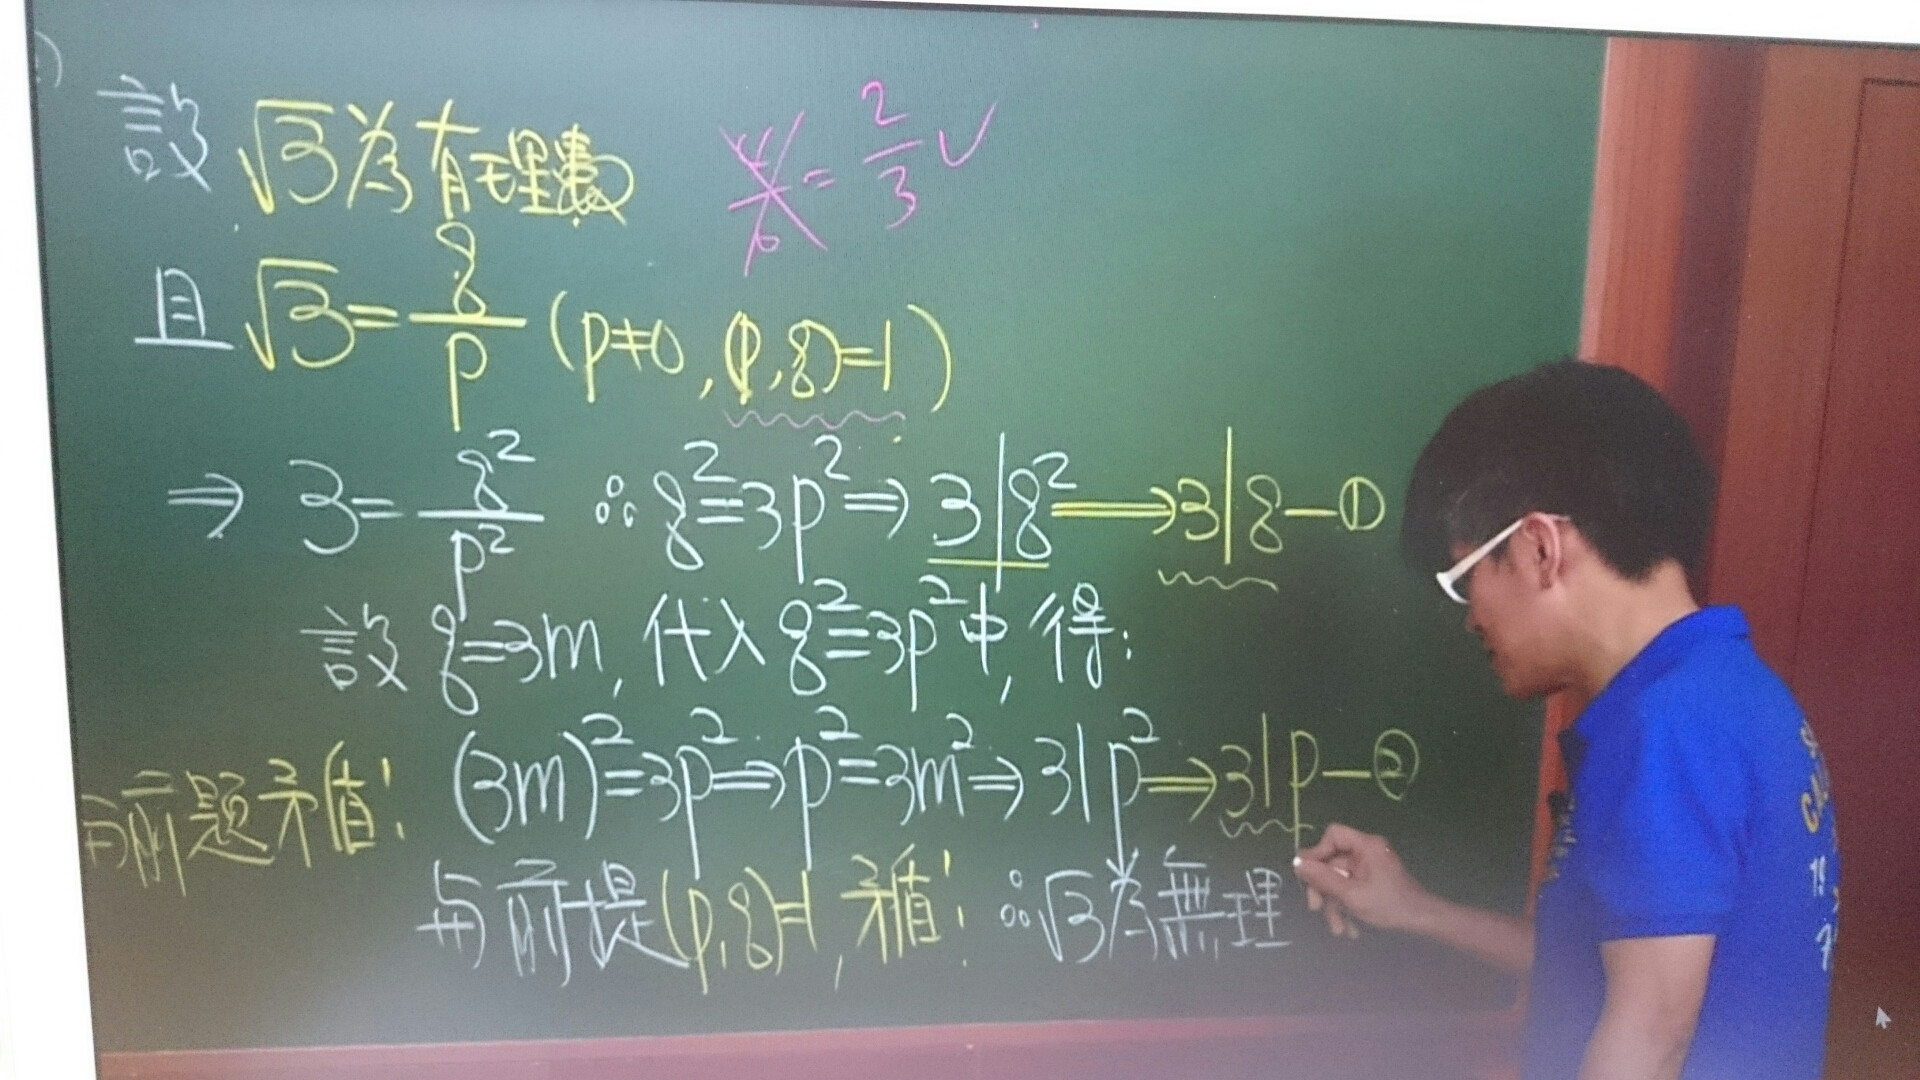 設 √3為有理數
4/6 = 2/3 ✓
且 √3 = q/p (p≠0, (p,q)=1)
⇒ 3 = q²/p² ∴ q²=3p² ⇒ 3|q² ⟹ 3|q — ①
設 q=3m, 代入 q²=3p²中, 得:
(3m)²=3p² ⇒ p²=3m² ⇒ 3|p² ⇒ 3|p — ②
与前題矛盾!
与前提(p,q)=1, 矛盾! ∴ √3為無理